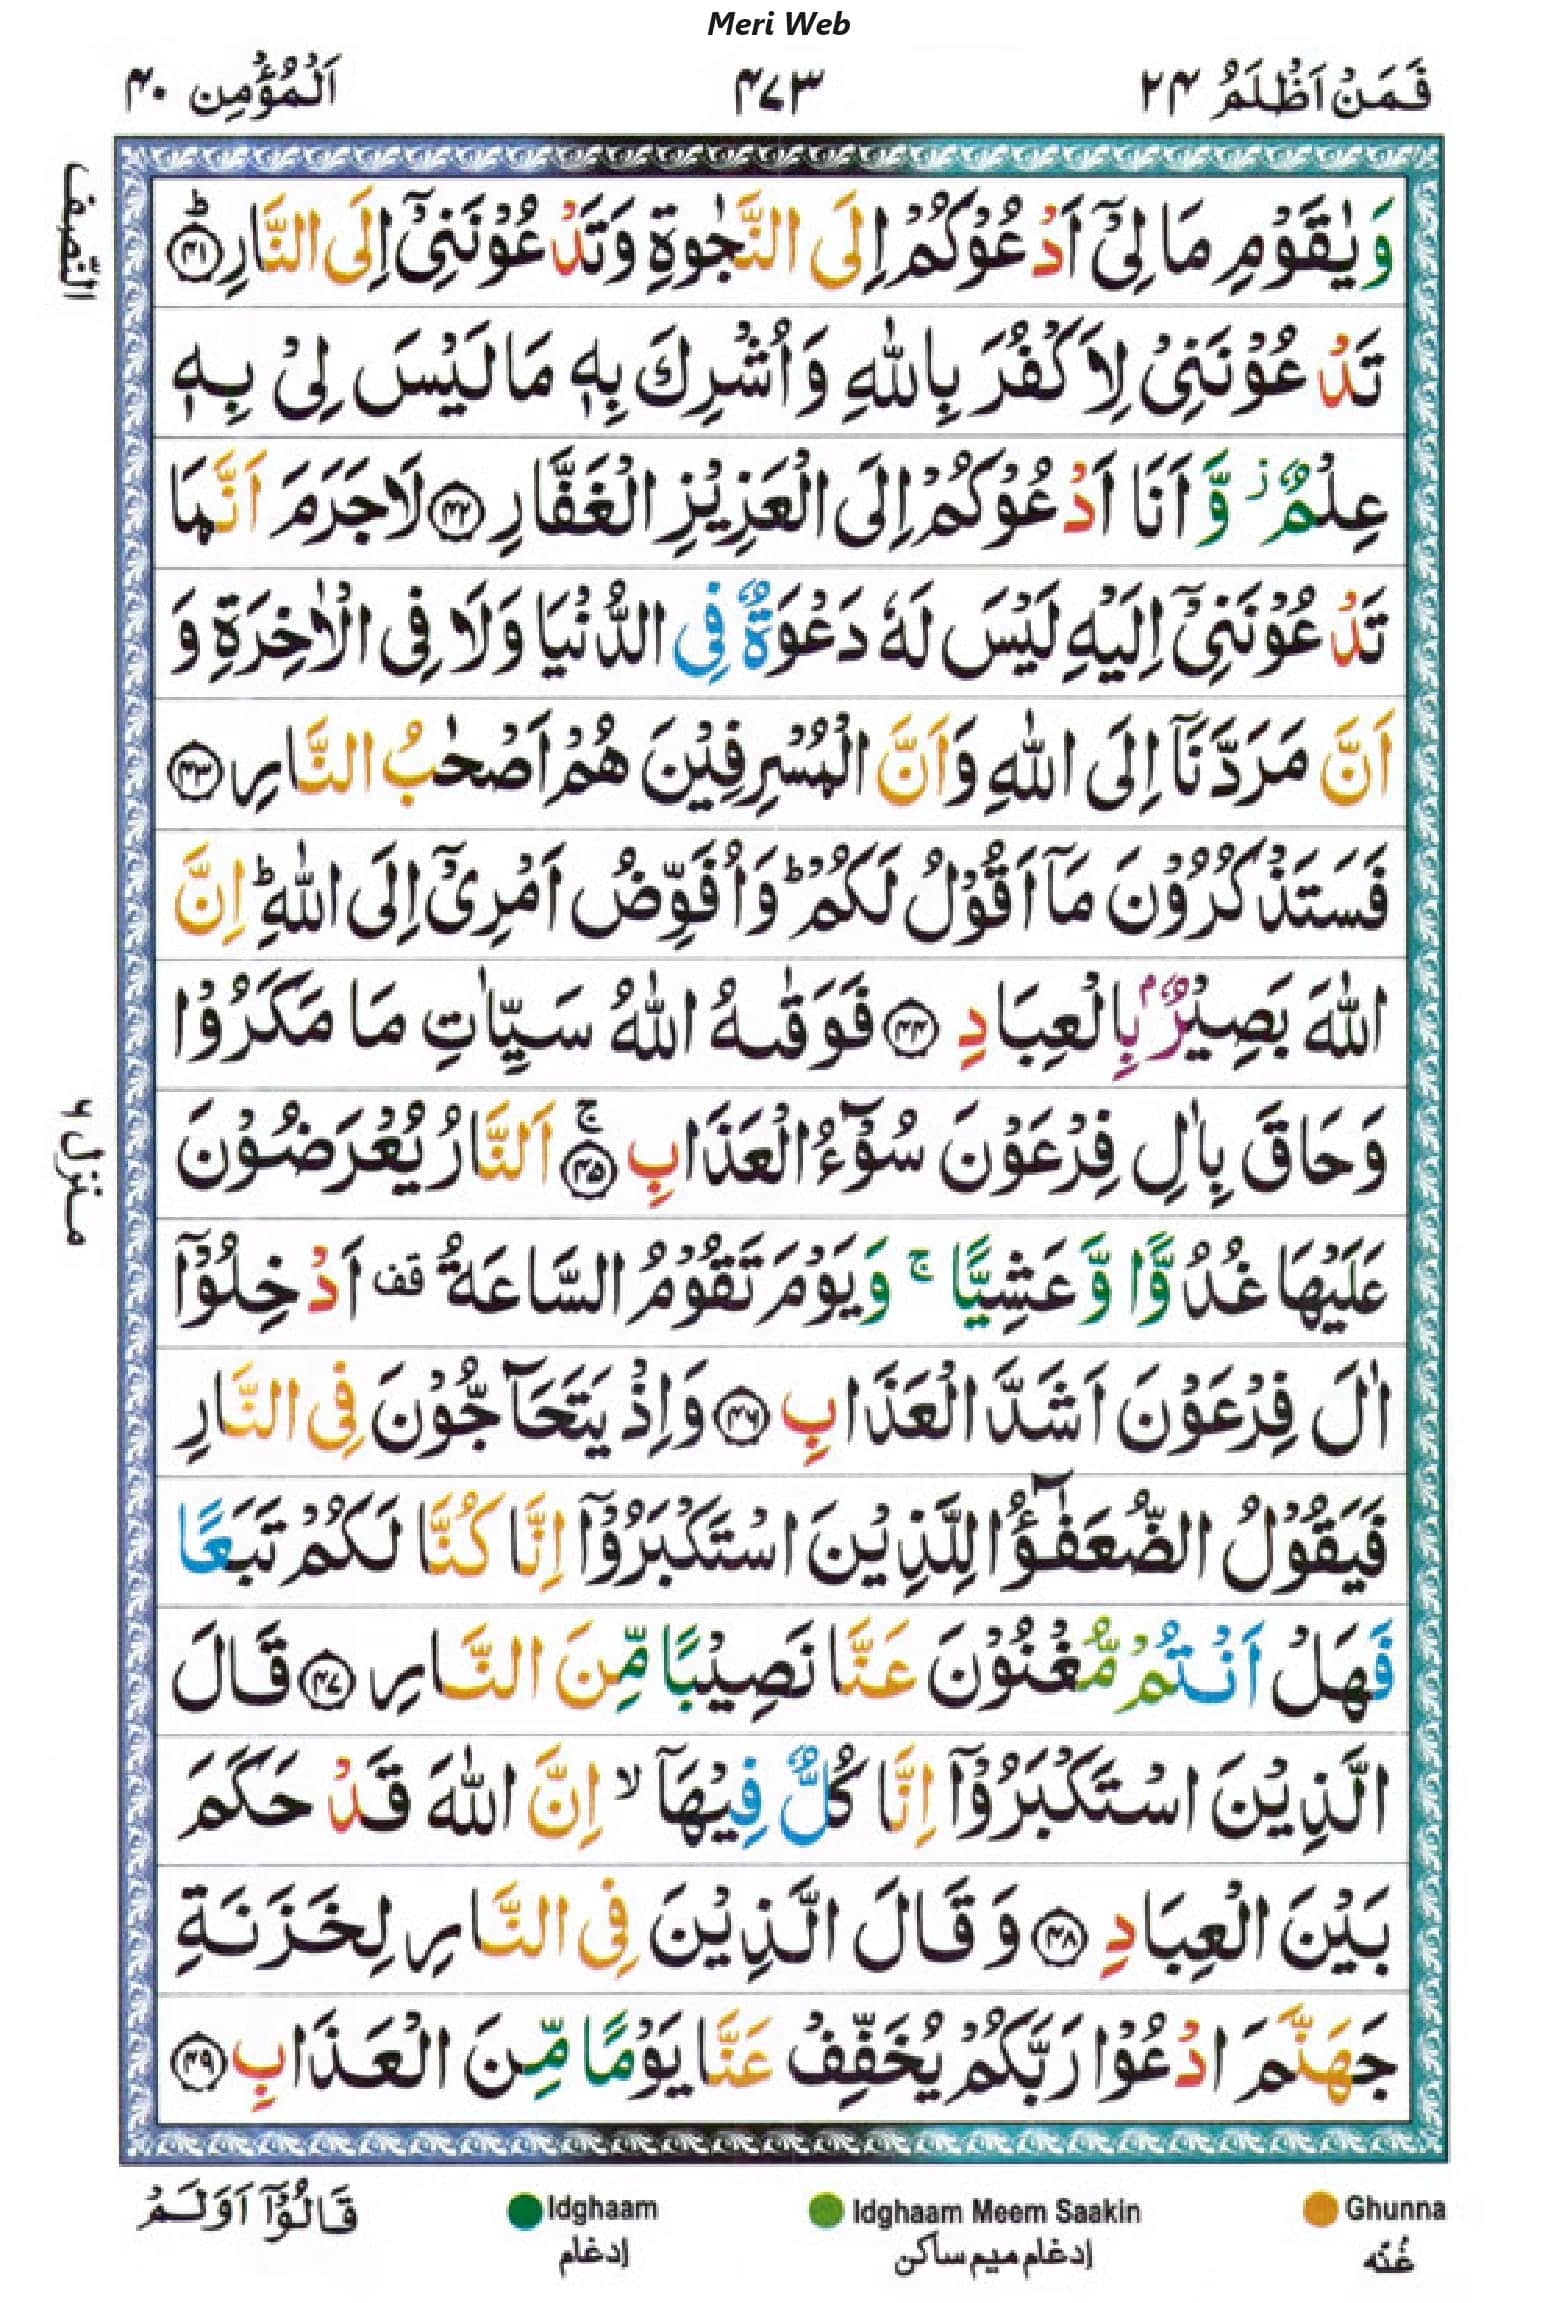 Meri Web
فَمَنْ اَظْلَمُ ٢٤
٤٧٣
اَلْمُؤْمِن ٤٠
وَيٰقَوْمِ مَا لِيْٓ اَدْعُوْكُمْ اِلَى النَّجٰوةِ وَتَدْعُوْنَنِيْٓ اِلَى النَّارِ ؕ ﴿٤١﴾
تَدْعُوْنَنِيْ لِاَكْفُرَ بِاللّٰهِ وَاُشْرِكَ بِهٖ مَا لَيْسَ لِيْ بِهٖ
عِلْمٌ ز وَّاَنَا اَدْعُوْكُمْ اِلَى الْعَزِيْزِ الْغَفَّارِ ﴿٤٢﴾ لَا جَرَمَ اَنَّمَا
تَدْعُوْنَنِيْٓ اِلَيْهِ لَيْسَ لَهٗ دَعْوَةٌ فِي الدُّنْيَا وَلَا فِي الْاٰخِرَةِ وَ
اَنَّ مَرَدَّنَآ اِلَى اللّٰهِ وَاَنَّ الْمُسْرِفِيْنَ هُمْ اَصْحٰبُ النَّارِ ﴿٤٣﴾
فَسَتَذْكُرُوْنَ مَآ اَقُوْلُ لَكُمْ ؕ وَاُفَوِّضُ اَمْرِيْٓ اِلَى اللّٰهِ ؕ اِنَّ
اللّٰهَ بَصِيْرٌۢ بِالْعِبَادِ ﴿٤٤﴾ فَوَقٰىهُ اللّٰهُ سَيِّاٰتِ مَا مَكَرُوْا
وَحَاقَ بِاٰلِ فِرْعَوْنَ سُوْٓءُ الْعَذَابِ ۚ ﴿٤٥﴾ اَلنَّارُ يُعْرَضُوْنَ
عَلَيْهَا غُدُوًّا وَّعَشِيًّا ۚ وَيَوْمَ تَقُوْمُ السَّاعَةُ قف اَدْخِلُوْٓا
اٰلَ فِرْعَوْنَ اَشَدَّ الْعَذَابِ ﴿٤٦﴾ وَاِذْ يَتَحَآجُّوْنَ فِي النَّارِ
فَيَقُوْلُ الضُّعَفٰٓؤُا لِلَّذِيْنَ اسْتَكْبَرُوْٓا اِنَّا كُنَّا لَكُمْ تَبَعًا
فَهَلْ اَنْتُمْ مُّغْنُوْنَ عَنَّا نَصِيْبًا مِّنَ النَّارِ ﴿٤٧﴾ قَالَ
الَّذِيْنَ اسْتَكْبَرُوْٓا اِنَّا كُلٌّ فِيْهَآ ۙ اِنَّ اللّٰهَ قَدْ حَكَمَ
بَيْنَ الْعِبَادِ ﴿٤٨﴾ وَقَالَ الَّذِيْنَ فِي النَّارِ لِخَزَنَةِ
جَهَنَّمَ ادْعُوْا رَبَّكُمْ يُخَفِّفْ عَنَّا يَوْمًا مِّنَ الْعَذَابِ ﴿٤٩﴾
النّصف
منزل ٦
Ghunna
غُنّه
Idghaam Meem Saakin
إدغام ميم ساكن
Idghaam
إدغام
قَالُوْٓا اَوَلَمْ